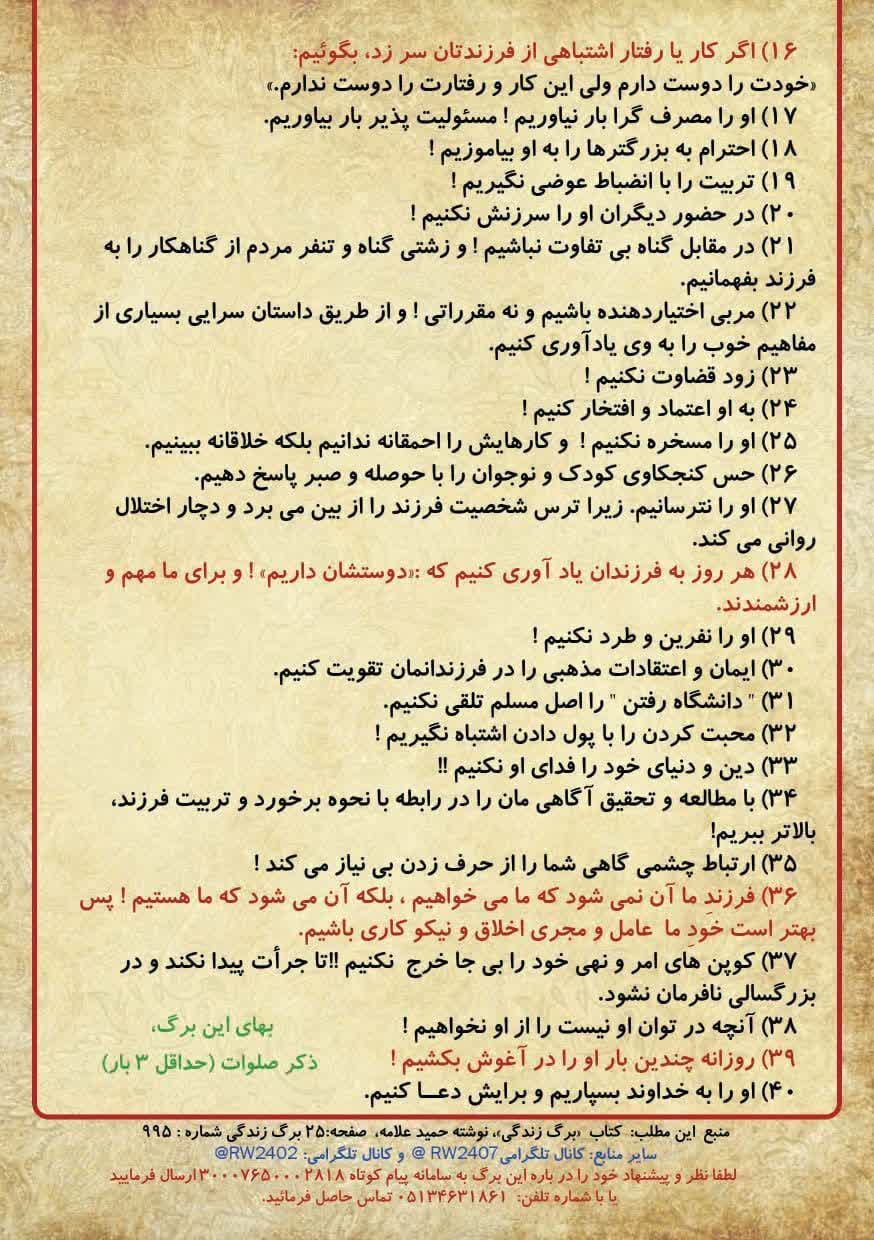 ۱۶) اگر کار یا رفتار اشتباهی از فرزندتان سر زد، بگوئیم:
«خودت را دوست دارم ولی این کار و رفتارت را دوست ندارم.»
۱۷) او را مصرف گرا بار نیاوریم ! مسئولیت پذیر بار بیاوریم.
۱۸) احترام به بزرگترها را به او بیاموزیم !
۱۹) تربیت را با انضباط عوضی نگیریم !
۲۰) در حضور دیگران او را سرزنش نکنیم !
۲۱) در مقابل گناه بی تفاوت نباشیم ! و زشتی گناه و تنفر مردم از گناهکار را به
فرزند بفهمانیم.
۲۲) مربی اختیاردهنده باشیم و نه مقرراتی ! و از طریق داستان سرایی بسیاری از
مفاهیم خوب را به وی یادآوری کنیم.
۲۳) زود قضاوت نکنیم !
۲۴) به او اعتماد و افتخار کنیم !
۲۵) او را مسخره نکنیم ! و کارهایش را احمقانه ندانیم بلکه خلاقانه ببینیم.
۲۶) حس کنجکاوی کودک و نوجوان را با حوصله و صبر پاسخ دهیم.
۲۷) او را نترسانیم. زیرا ترس شخصیت فرزند را از بین می برد و دچار اختلال
روانی می کند.
۲۸) هر روز به فرزندان یاد آوری کنیم که :«دوستشان داریم» ! و برای ما مهم و
ارزشمندند.
۲۹) او را نفرین و طرد نکنیم !
۳۰) ایمان و اعتقادات مذهبی را در فرزندانمان تقویت کنیم.
۳۱) " دانشگاه رفتن " را اصل مسلم تلقی نکنیم.
۳۲) محبت کردن را با پول دادن اشتباه نگیریم !
۳۳) دین و دنیای خود را فدای او نکنیم !!
۳۴) با مطالعه و تحقیق آگاهی مان را در رابطه با نحوه برخورد و تربیت فرزند،
بالاتر ببریم!
۳۵) ارتباط چشمی گاهی شما را از حرف زدن بی نیاز می کند !
۳۶) فرزندِ ما آن نمی شود که ما می خواهیم ، بلکه آن می شود که ما هستیم ! پس
بهتر است خودِ ما عامل و مجری اخلاق و نیکو کاری باشیم.
۳۷) کوپن های امر و نهی خود را بی جا خرج نکنیم !!تا جرأت پیدا نکند و در
بزرگسالی نافرمان نشود.
۳۸) آنچه در توان او نیست را از او نخواهیم !
۳۹) روزانه چندین بار او را در آغوش بکشیم !
۴۰) او را به خداوند بسپاریم و برایش دعــا کنیم.
بهای این برگ،
ذکر صلوات (حداقل ۳ بار)
منبع این مطلب: کتاب «برگ زندگی»، نوشته حمید علامه، صفحه:۲۵ برگ زندگی شماره : ۹۹۵
سایر منابع: کانال تلگرامی RW2407 @ و کانال تلگرامی: RW2402@
لطفا نظر و پیشنهاد خود را در باره این برگ به سامانه پیام کوتاه ۳۰۰۰۷۶۵۰۰۰۲۸۱۸ ارسال فرمایید
یا با شماره تلفن: ۰۵۱۳۴۶۳۱۸۶۱ تماس حاصل فرمائید.